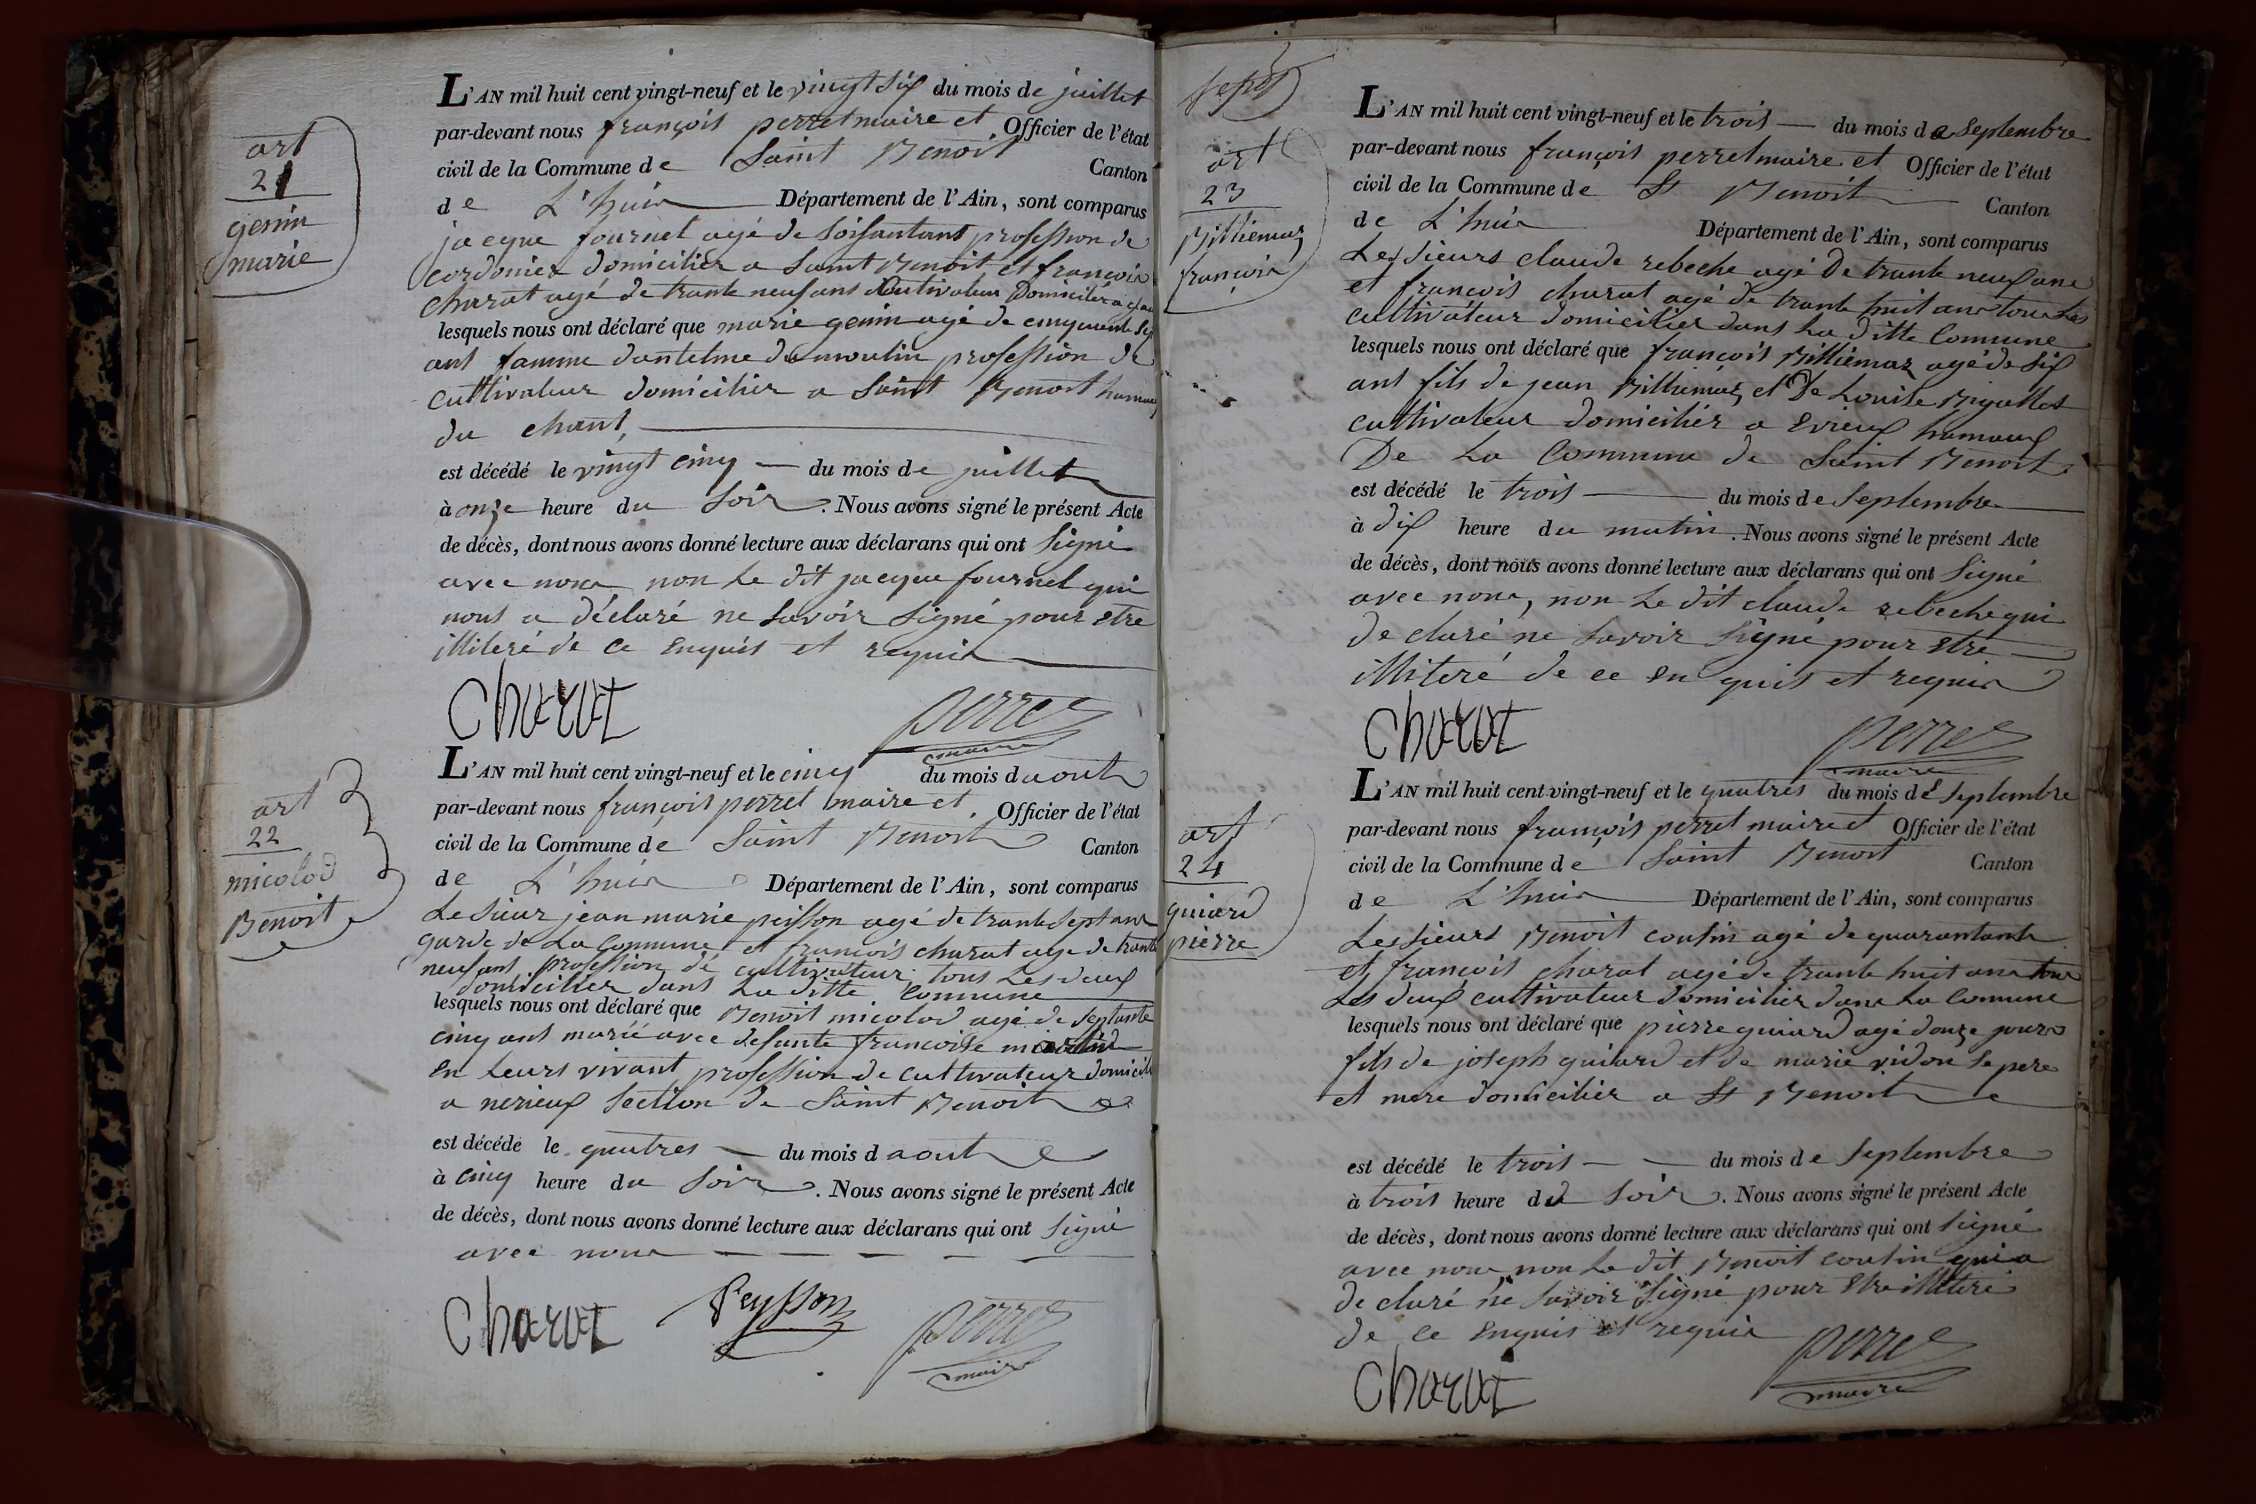 art
21
genin
marie
L'AN mil huit cent vingt-neuf et le vingt six du mois de juillet
par-devant nous françois perret maire et Officier de l'état
civil de la Commune de Saint Benoit Canton
de L'huis Département de l'Ain, sont comparus
jacque fournet agé de soissantans profession de
cordonier domicilier a Saint Benoit et françois
charat agé de trante neuf ans Cultivateur Domicilié a
lesquels nous ont déclaré que marie genin agé de cinquante
ans famme dantelme dumoulin profession de
cultivateur domicilier a Saint Benoit hamau
du chant
est décédé le vingt cinq du mois de juillet
à onze heure du Soir. Nous avons signé le présent Acte
de décès, dont nous avons donné lecture aux déclarans qui ont Signé
avec nous non le dit jacque fournet qui
nous a déclaré ne savoir signé pour etre
illiteré de ce Enquis et requis
Charat perret
maire
art
22
micolod
Benoit
L'AN mil huit cent vingt-neuf et le cinq du mois d aout
par-devant nous françois perret maire et Officier de l'état
civil de la Commune de Saint Benoit Canton
de L'huis Département de l'Ain, sont comparus
Le Sieur jean marie peisson agé de trante sept ans
garde de La Commune et françois charat age de trante
neuf ans profession de cultivateur tous Les deux
domicilier dans La ditte Commune
lesquels nous ont déclaré que Benoit micolod agé de septante
cinq ans marié avec defunte francoise
en Leurs vivant profession de cultivateur domicili
a nerieux Section de Saint Benoit
est décédé le quatres du mois d aout
à cinq heure du Soir. Nous avons signé le présent Acte
de décès, dont nous avons donné lecture aux déclarans qui ont Signé
avec nous
Charat Peysson perret
maire
art
23
Billiemaz
françois
L'AN mil huit cent vingt-neuf et le trois du mois de Septembre
par-devant nous françois perret maire et Officier de l'état
civil de la Commune de St Benoit Canton
de L'huis Département de l'Ain, sont comparus
Les Sieurs claude rebeche agé De trante neuf ans
et françois charat agé de trante huit ans tous Les
cultivateur domicilier dans La ditte Commune
lesquels nous ont déclaré que françois Billiemaz agé de six
ant fils de jean Billiemaz et De Louise Bigallet
cultivateur domicilier a Evieux hamaux
De La Commune de Saint Benoit
est décédé le trois du mois de Septembre
à dix heure du matin. Nous avons signé le présent Acte
de décès, dont nous avons donné lecture aux déclarans qui ont Signé
avec nous, non Le dit claude rebeche qui
de claré ne savoir signé pour Etre
illiteré de ce en quis et requis
Charat perret
maire
art
24
guiard
pierre
L'AN mil huit cent vingt-neuf et le quatres du mois de Septembre
par-devant nous françois perret maire et Officier de l'état
civil de la Commune de Saint Benoit Canton
de L'huis Département de l'Ain, sont comparus
Les Sieurs Benoit coutin agé de quarantans
et françois charat agé de trante huit ans tous
Les deux cultivateur domicilier dans La Comune
lesquels nous ont déclaré que pierre guiard agé douze jours
fils de joseph guiard et de marie vidon le pere
et mere domicilier a St Benoit
est décédé le trois du mois de Septembre
à trois heure du Soir. Nous avons signé le présent Acte
de décès, dont nous avons donné lecture aux déclarans qui ont Signé
avec nous non Le dit Benoit coutin qui a
de claré ne savoir Signé pour Etre illiteré
de ce Enquis et requis perret
maire
Charat